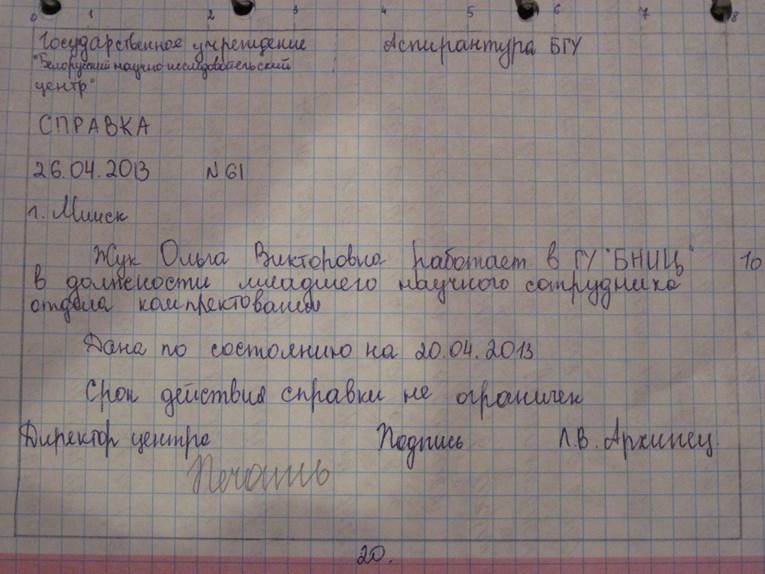 0 1 2 3 4 5 6 7 8
Государственное учреждение Аспирантура БГУ
"Белорусский научно-исследовательский
центр"
СПРАВКА
26.04.2013 №61
г. Минск
Жук Ольга Викторовна работает в ГУ "БНИЦ" 10
в должности младшего научного сотрудника
отдела
Дана по состоянию на 20.04.2013
Срок действия справки не ограничен
Директор центра Подпись Л.В. Архипец
Печать
20.